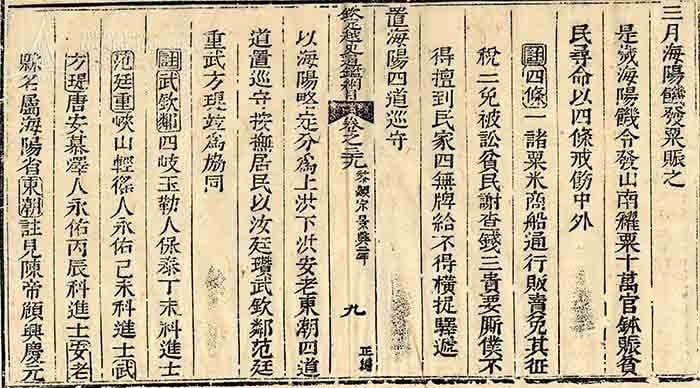 三月海陽饑發粟賑之
是歲海陽饑令發山南糴粟十萬官鉢賑貧
民尋命以四條戒飭中外
註四條一諸粟米商船通行販賣免其征
稅二免被訟貧民謝查錢三貴要厮僕不
得擅到民家四無牌給不得橫捉驛遞
置海陽四道巡守
欽定越史通鑑綱目 卷之三九 黎顯宗景興二年 九 正編
以海陽略定分爲上洪下洪安老東潮四道
道置巡守按撫居民以汝廷瓚武欽鄰范廷
重武方瑅並爲協同
註武欽鄰四岐玉勒人保泰丁未科進士
范廷重峽山輕徭人永佑己未科進士武
方瑅唐安慕澤人永佑丙辰科進士安老
縣名屬海陽省東潮註見陳帝顒興慶元